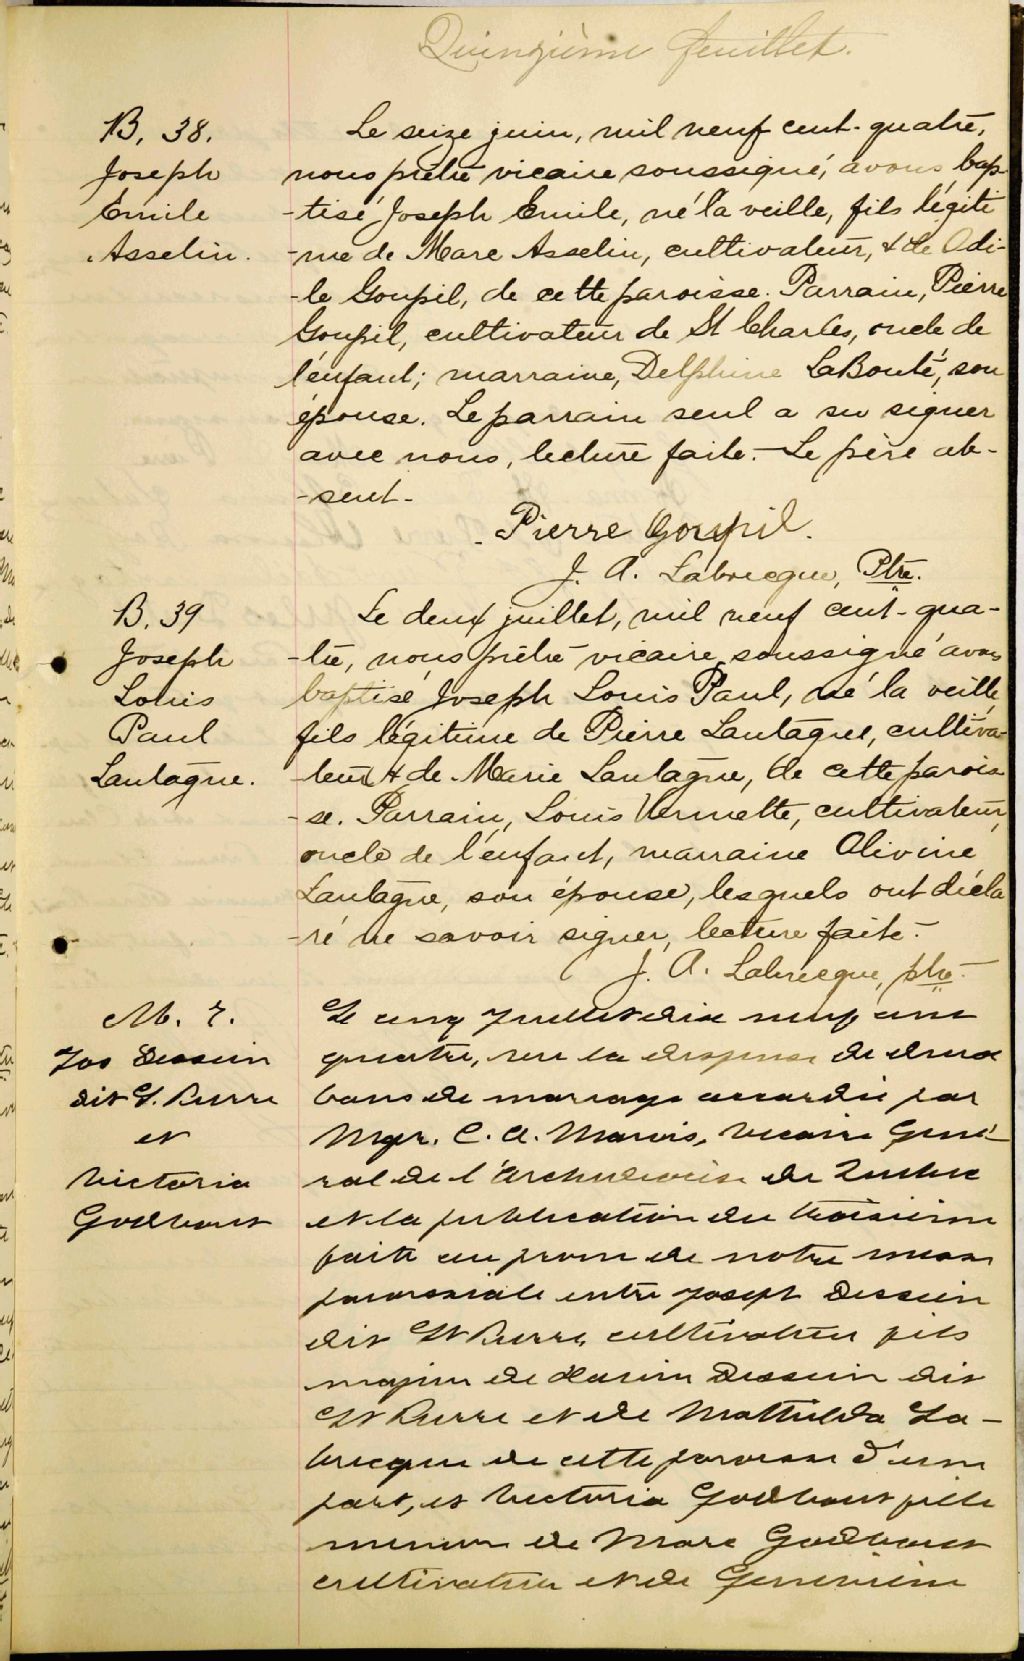 Quinzième feuillet.
B. 38.
Joseph
Emile
Asselin.
Le seize juin, mil neuf cent-quatre,
nous prêtre vicaire soussigné, avons bap-
-tisé Joseph Emile, né la veille, fils légiti
-me de Marc Asselin, cultivateur, & de Odi-
-le Goupil, de cette paroisse. Parrain, Pierre
Goupil, cultivateur de St Charles, oncle de
l'enfant; marraine, Delphine LaBonté, son
épouse. Le parrain seul a su signer
avec nous, lecture faite. - Le père ab-
-sent-
Pierre Goupil.
J. A. Labrecque, Ptre.
B. 39
Joseph
Louis
Paul
Lantagne.
Le deux juillet, mil neuf cent-qua-
-tre, nous prêtre vicaire soussigné avons
baptisé Joseph Louis Paul, né la veille,
fils légitime de Pierre Lantagne, cultiva-
teur & de Marie Lantagne, de cette parois
-se. Parrain, Louis Vermette, cultivateur,
oncle de l'enfant, marraine Olivine
Lantagne, son épouse, lesquels ont décla
-ré ne savoir signer, lecture faite.-
J. A. Labrecque, ptre.
M. 7.
Jos Dessein
dit S. Pierre
et
Victoria
Godbout
Le cinq juillet dix neuf cent
quatre, vu la dispense de deux
bans de mariage accordée par
Mgr. C. A. Marois, Vicaire Géné-
ral de l'Archidiocèse de Québec
et la publication du troisième
faite au prône de notre messe
paroissiale entre Joseph Dessein
dit St Pierre, cultivateur fils
majeur de Dessein dit
St Pierre et de Mathilda La-
brecque de cette paroisse d'une
part, et Victoria Godbout fille
mineure de Marc Godbout
cultivateur et de Geneviève